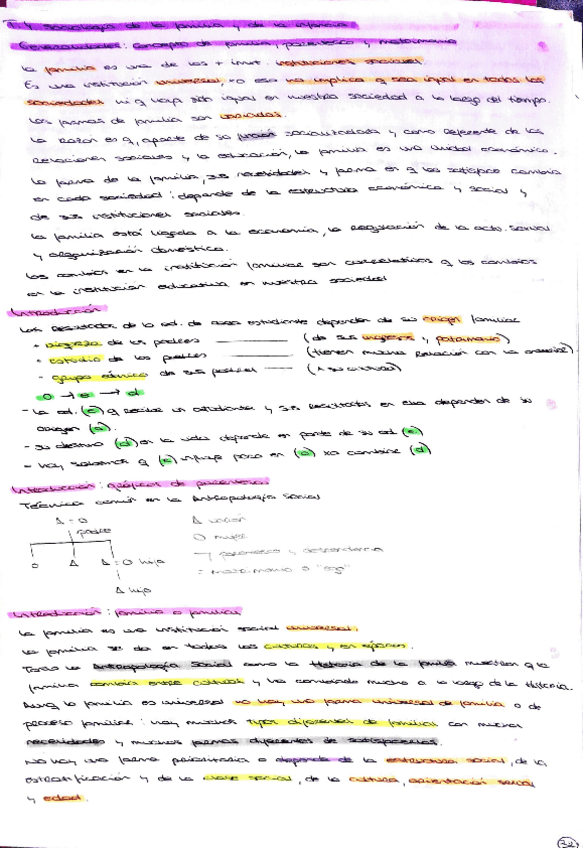 T.1. Sociología de la familia y de la infancia
Generalidades: concepto de familia, parentesco y matrimonio
La familia es una de las + imxt. instituciones sociales
Es una institución universal, no eso no implica q sea igual en todas las
sociedades ni q haya sido igual en nuestra sociedad a lo largo del tiempo.
Las formas de familia son variadas.
La razón es q, aparte de su socializadora y como referente de las
relaciones sociales y la educación, la familia es una unidad económica.
La forma de la familia, sus necesidades y forma en q las satisface cambia
en cada sociedad: depende de la estructura económica y social y
de sus instituciones sociales.
La familia está ligada a la economía, la regulación de la activ. sexual
y organización doméstica.
Los cambios en la institución familiar son correlativos q los cambios
en la institución educativa en nuestra sociedad
Introducción
Los resultados de la ed. de cada estudiante dependen de su origen familiar
- riqueza de los padres (de sus ingresos y patrimonio)
- estudio de los padres (tienen mucha relación con la )
- grupo étnico de sus padres (+ su cultura)
o → e → d
- La ed. (e) q recibe un estudiante y sus resultados en ella dependen de su
origen (o).
- su destino (d) en la vida depende en parte de su ed. (e)
- hoy sabemos q (e) influye poco en (o) xa cambiar (d)
Introducción: gráficos de parentesco
Técnica común en la Antropología Social
Δ = O
padre
O Δ Δ = O hija
Δ hijo
Δ varón
O mujer
parentesco y descendencia
= matrimonio o "eq"
Introducción: familia o familias
La familia es una institución social universal.
La familia se da en todas las culturas y en épocas.
Tanto la Antropología Social como la Historia de la familia muestran q la
familia cambia entre culturas y ha cambiado mucho a lo largo de la Historia.
Aunq la familia es universal no hay una forma universal de familia o de
proceso familiar: hay muchos tipos diferentes de familias con muchas
necesidades y muchas formas diferentes de satisfacerlas.
No hay una forma prioritaria o depende de la estructura social, de la
estratificación y de la clase social, de la cultura, orientación sexual
y edad.